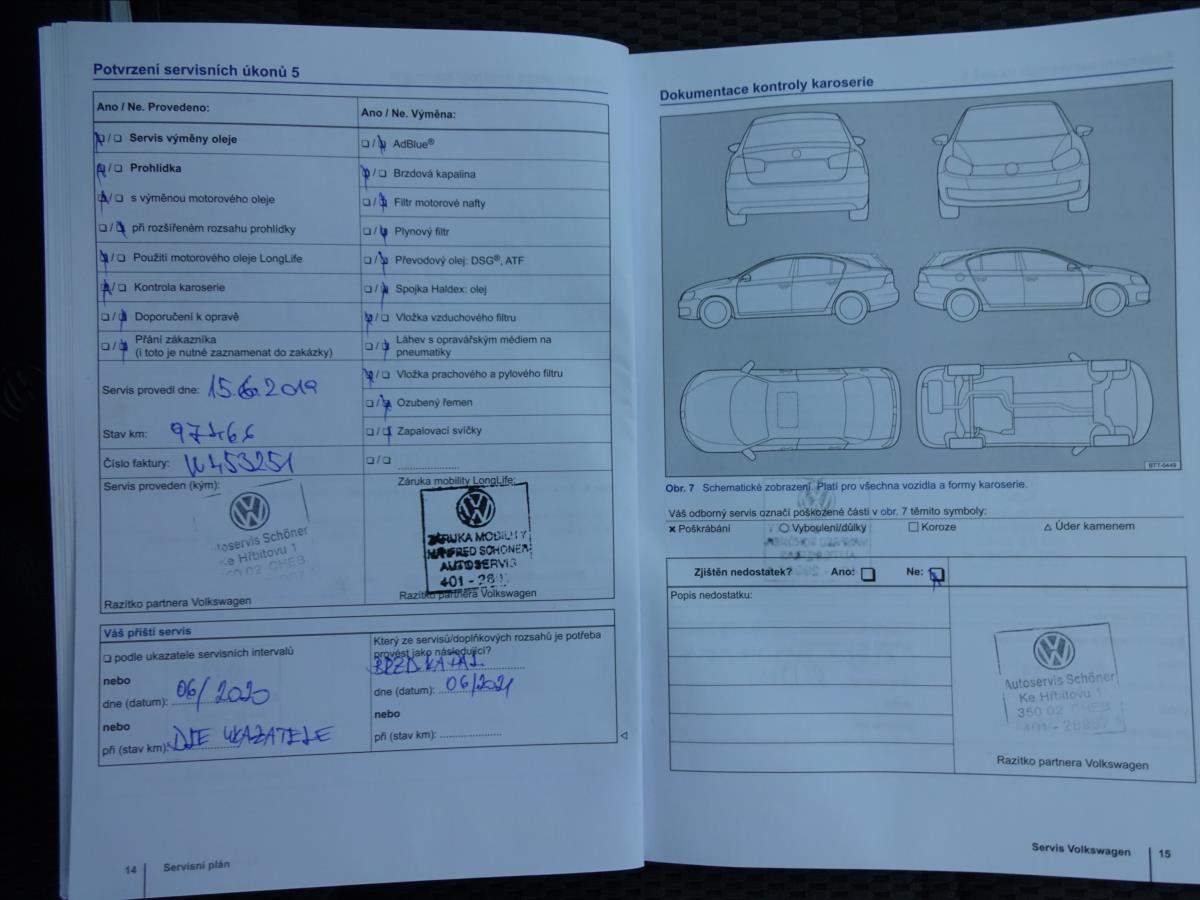 Potvrzení servisních úkonů 5
Ano / Ne. Provedeno:
❏/❏ Servis výměny oleje
❏/❏ Prohlídka
❏/❏ s výměnou motorového oleje
❏/❏ při rozšířeném rozsahu prohlídky
❏/❏ Použití motorového oleje LongLife
❏/❏ Kontrola karoserie
❏/❏ Doporučení k opravě
❏/❏ Přání zákazníka
(i toto je nutné zaznamenat do zakázky)
Servis provedl dne: 15.6.2019
Stav km:
Číslo faktury:
Servis proveden (kým):
Autoservis Schöner
Ke Hřbitovu 1
350 02 CHEB
Razítko partnera Volkswagen
Ano / Ne. Výměna:
❏/❏ AdBlue®
❏/❏ Brzdová kapalina
❏/❏ Filtr motorové nafty
❏/❏ Plynový filtr
❏/❏ Převodový olej: DSG®, ATF
❏/❏ Spojka Haldex: olej
❏/❏ Vložka vzduchového filtru
❏/❏ Láhev s opravářským médiem na
pneumatiky
❏/❏ Vložka prachového a pylového filtru
❏/❏ Ozubený řemen
❏/❏ Zapalovací svíčky
❏/❏
Záruka mobility LongLife:
ZÁRUKA MOBILITY
MANFRED SCHÖNER
AUTOSERVIS
Razítko partnera Volkswagen
Váš příští servis
❏ podle ukazatele servisních intervalů
nebo
dne (datum): 06/2020
nebo
při (stav km): DLE UKAZATELE
Který ze servisů/doplňkových rozsahů je potřeba
provést jako následující?
BRZD.KAPAL.
dne (datum): 06/2021
nebo
při (stav km):
14 Servisní plán
Dokumentace kontroly karoserie
BTT-0449
Obr. 7 Schematické zobrazení. Platí pro všechna vozidla a formy karoserie.
Váš odborný servis označí poškozené části v obr. 7 těmito symboly:
× Poškrábání ○ Vyboulení/důlky □ Koroze △ Úder kamenem
Zjištěn nedostatek? Ano: ❏ Ne: ❏
Popis nedostatku:
Autoservis Schöner
Ke Hřbitovu 1
350 02 CHEB
Razítko partnera Volkswagen
Servis Volkswagen 15